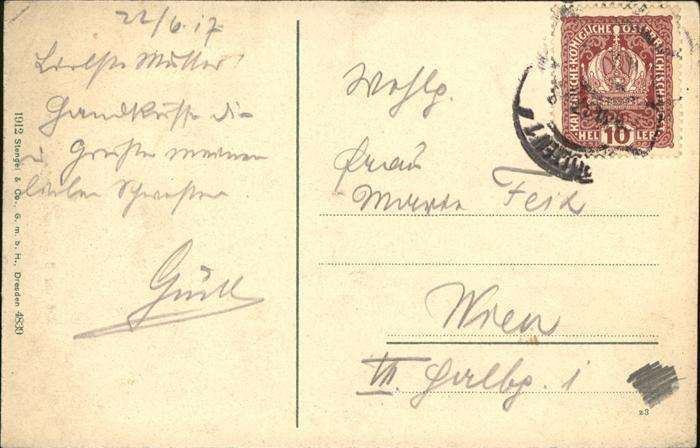 22/6.17
Liebste Mutter!
Handküsse die
u. Grüße meinen
lieben Schwestern
1912 Stengel & Co., G. m. b. H., Dresden 4839
KAISERLICHE KÖNIGLICHE ÖSTERREICHISCHE
HEL 10 LER
Wohlg.
Frau
Marie Feix
Wien
III.
23